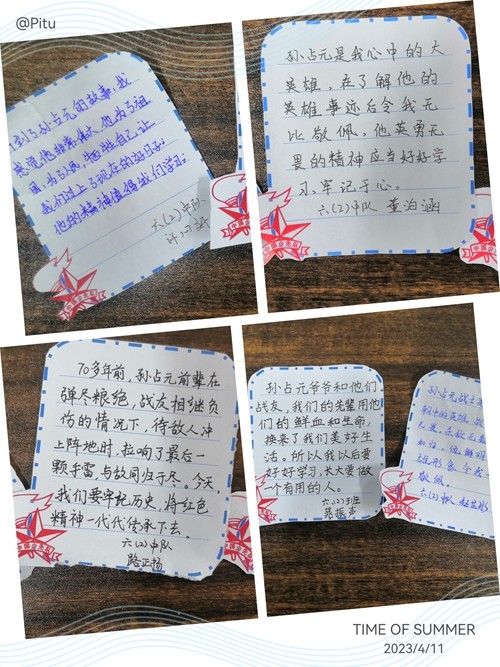 @Pitu
到了孙占元的故事,我
感觉他非常伟大,他为了祖
国,为了人民,牺牲自己,让
我们过上了现在的好日子。
他的精神值得我们学习。
六(2)中队
孙占元是我心中的大
英雄,在了解他的
英雄事迹后令我无
比敬佩,他英勇无
畏的精神应当好好学
习,牢记于心。
六(2)中队 董泊涵
70多年前,孙占元前辈在
弹尽粮绝,战友相继负
伤的情况下,待敌人冲
上阵地时,拉响了最后一
颗手雷,与敌同归于尽。今天,
我们要牢记历史,将红色
精神一代代传承下去。
六(2)中队
路正扬
孙占元爷爷和他们
战友,我们的先辈用他
们的鲜血和生命,
换来了我们美好生
活。所以我以后要
好好学习,长大要做
一个有用的人。
六(2)班
振声
孙占元战士
敬佩。
六(2)中队
TIME OF SUMMER
2023/4/11